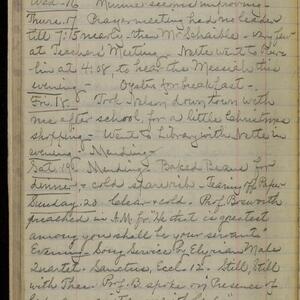 Wed - 16 Minnie seems improving -
Thurs. 17 Prayer meeting had no leader
till 7:15 nearly - then Mr Schaible - very few
at Teachers' Meeting. Nette went to Ober-
lin at 4:08 to hear the Messiah this
evening - Oysters for breakfast -
Fri. 18 - Took Nelson down town with
me after school, for a little Christmas
shopping - Went to Library with Nette in
evening - Mending -
Sat. 19 Mending - Baked Beans for
dinner - cold sparerib - Tearing off Paper
Sunday 20 Clear & cold. Prof. Bosworth
preached in A.M. fr. "He that is greatest
among you shall be your servant"
Evening - Song Service by Elyrian Male
Quartet. Sanctus, Eccl. 12. Still, Still
with Thee. Prof. B. spoke on Presence of